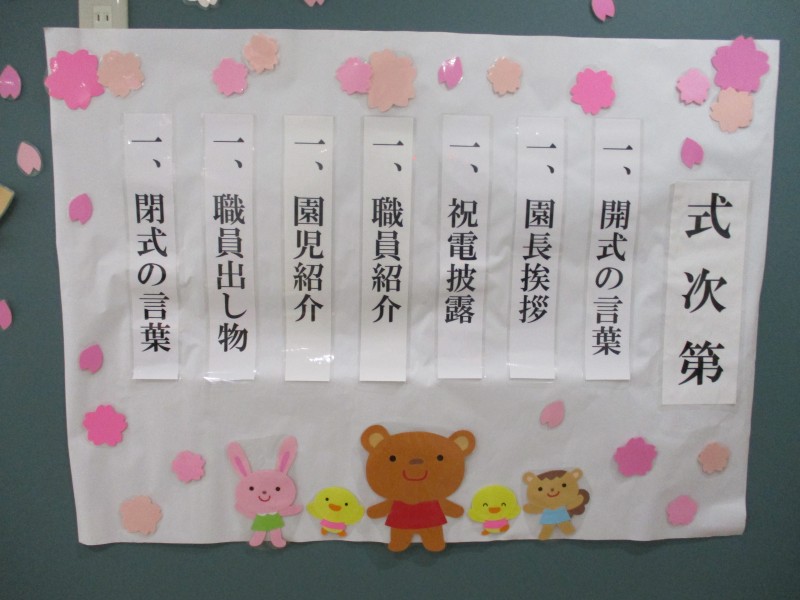 式次第
一、開式の言葉
一、園長挨拶
一、祝電披露
一、職員紹介
一、園児紹介
一、職員出し物
一、閉式の言葉